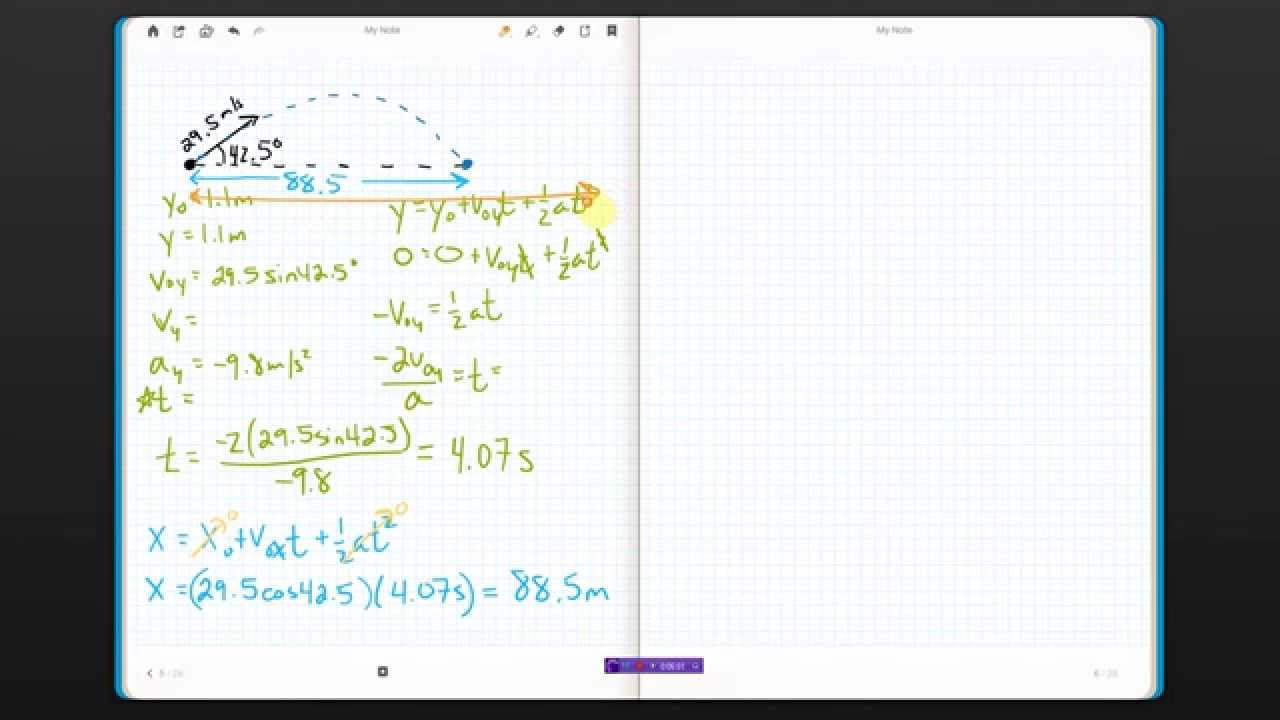 My Note
My Note
29.5 m/s
42.5°
88.5
y₀ = 1.1m
y = 1.1m
v₀y = 29.5 sin42.5°
vy =
ay = -9.8m/s²
☆t =
y = y₀ + v₀yt + ½at²
0 = 0 + v₀yt + ½at²
-v₀y = ½at
-2v₀y / a = t =
t = -2(29.5sin42.5) / -9.8 = 4.07s
x = x₀ + v₀xt + ½at²
0
0
x = (29.5cos42.5)(4.07s) = 88.5m
5 / 26